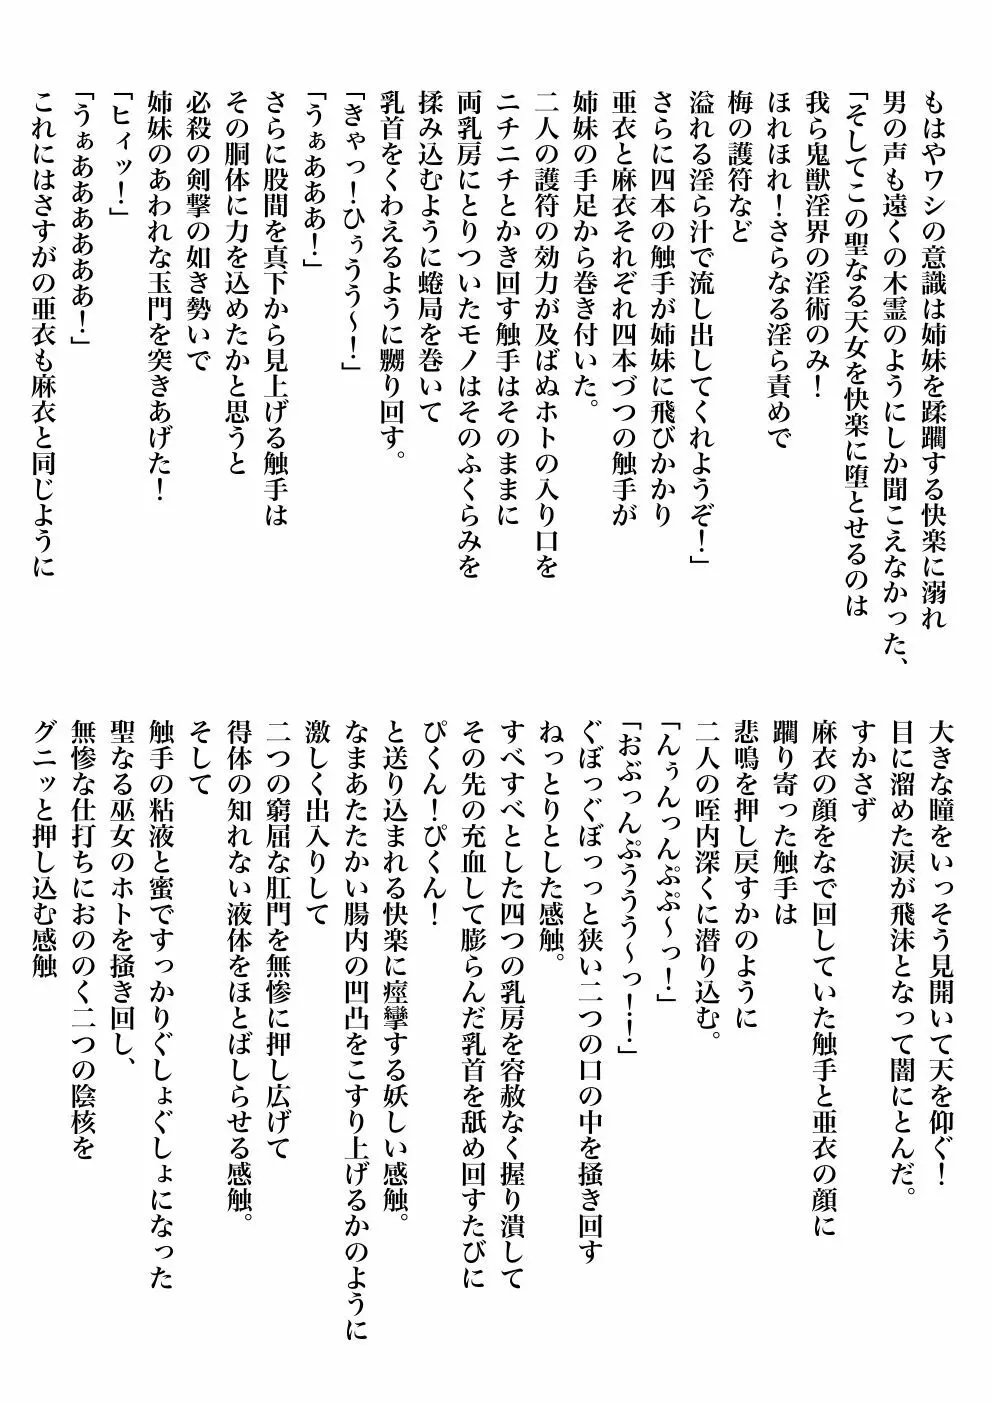 もはやワシの意識は姉妹を蹂躙する快楽に溺れ
男の声も遠くの木霊のようにしか聞こえなかった、
「そしてこの聖なる天女を快楽に堕とせるのは
我ら鬼獣淫界の淫術のみ！
ほれほれ！さらなる淫ら責めで
梅の護符など
溢れる淫ら汁で流し出してくれようぞ！」
さらに四本の触手が姉妹に飛びかかり
亜衣と麻衣それぞれ四本づつの触手が
姉妹の手足から巻き付いた。
二人の護符の効力が及ばぬホトの入り口を
ニチニチとかき回す触手はそのままに
両乳房にとりついたモノはそのふくらみを
揉み込むように蜷局を巻いて
乳首をくわえるように嬲り回す。
「きゃっ！ひぅうう～！」
「うぁあああ！」
さらに股間を真下から見上げる触手は
その胴体に力を込めたかと思うと
必殺の剣撃の如き勢いで
姉妹のあわれな玉門を突きあげた！
「ヒィッ！」
「うぁああああああ！」
これにはさすがの亜衣も麻衣と同じように
大きな瞳をいっそう見開いて天を仰ぐ！
目に溜めた涙が飛沫となって闇にとんだ。
すかさず
麻衣の顔をなで回していた触手と亜衣の顔に
躙り寄った触手は
悲鳴を押し戻すかのように
二人の咥内深くに潜り込む。
「んぅんっんぷぷ～っ！」
「おぶっんぷううう～っ！！」
ぐぼっぐぼっっと狭い二つの口の中を掻き回す
ねっとりとした感触。
すべすべとした四つの乳房を容赦なく握り潰して
その先の充血して膨らんだ乳首を舐め回すたびに
ぴくん！ぴくん！
と送り込まれる快楽に痙攣する妖しい感触。
なまあたたかい腸内の凹凸をこすり上げるかのように
激しく出入りして
二つの窮屈な肛門を無惨に押し広げて
得体の知れない液体をほとばしらせる感触。
そして
触手の粘液と蜜ですっかりぐしょぐしょになった
聖なる巫女のホトを掻き回し、
無惨な仕打ちにおののく二つの陰核を
グニッと押し込む感触